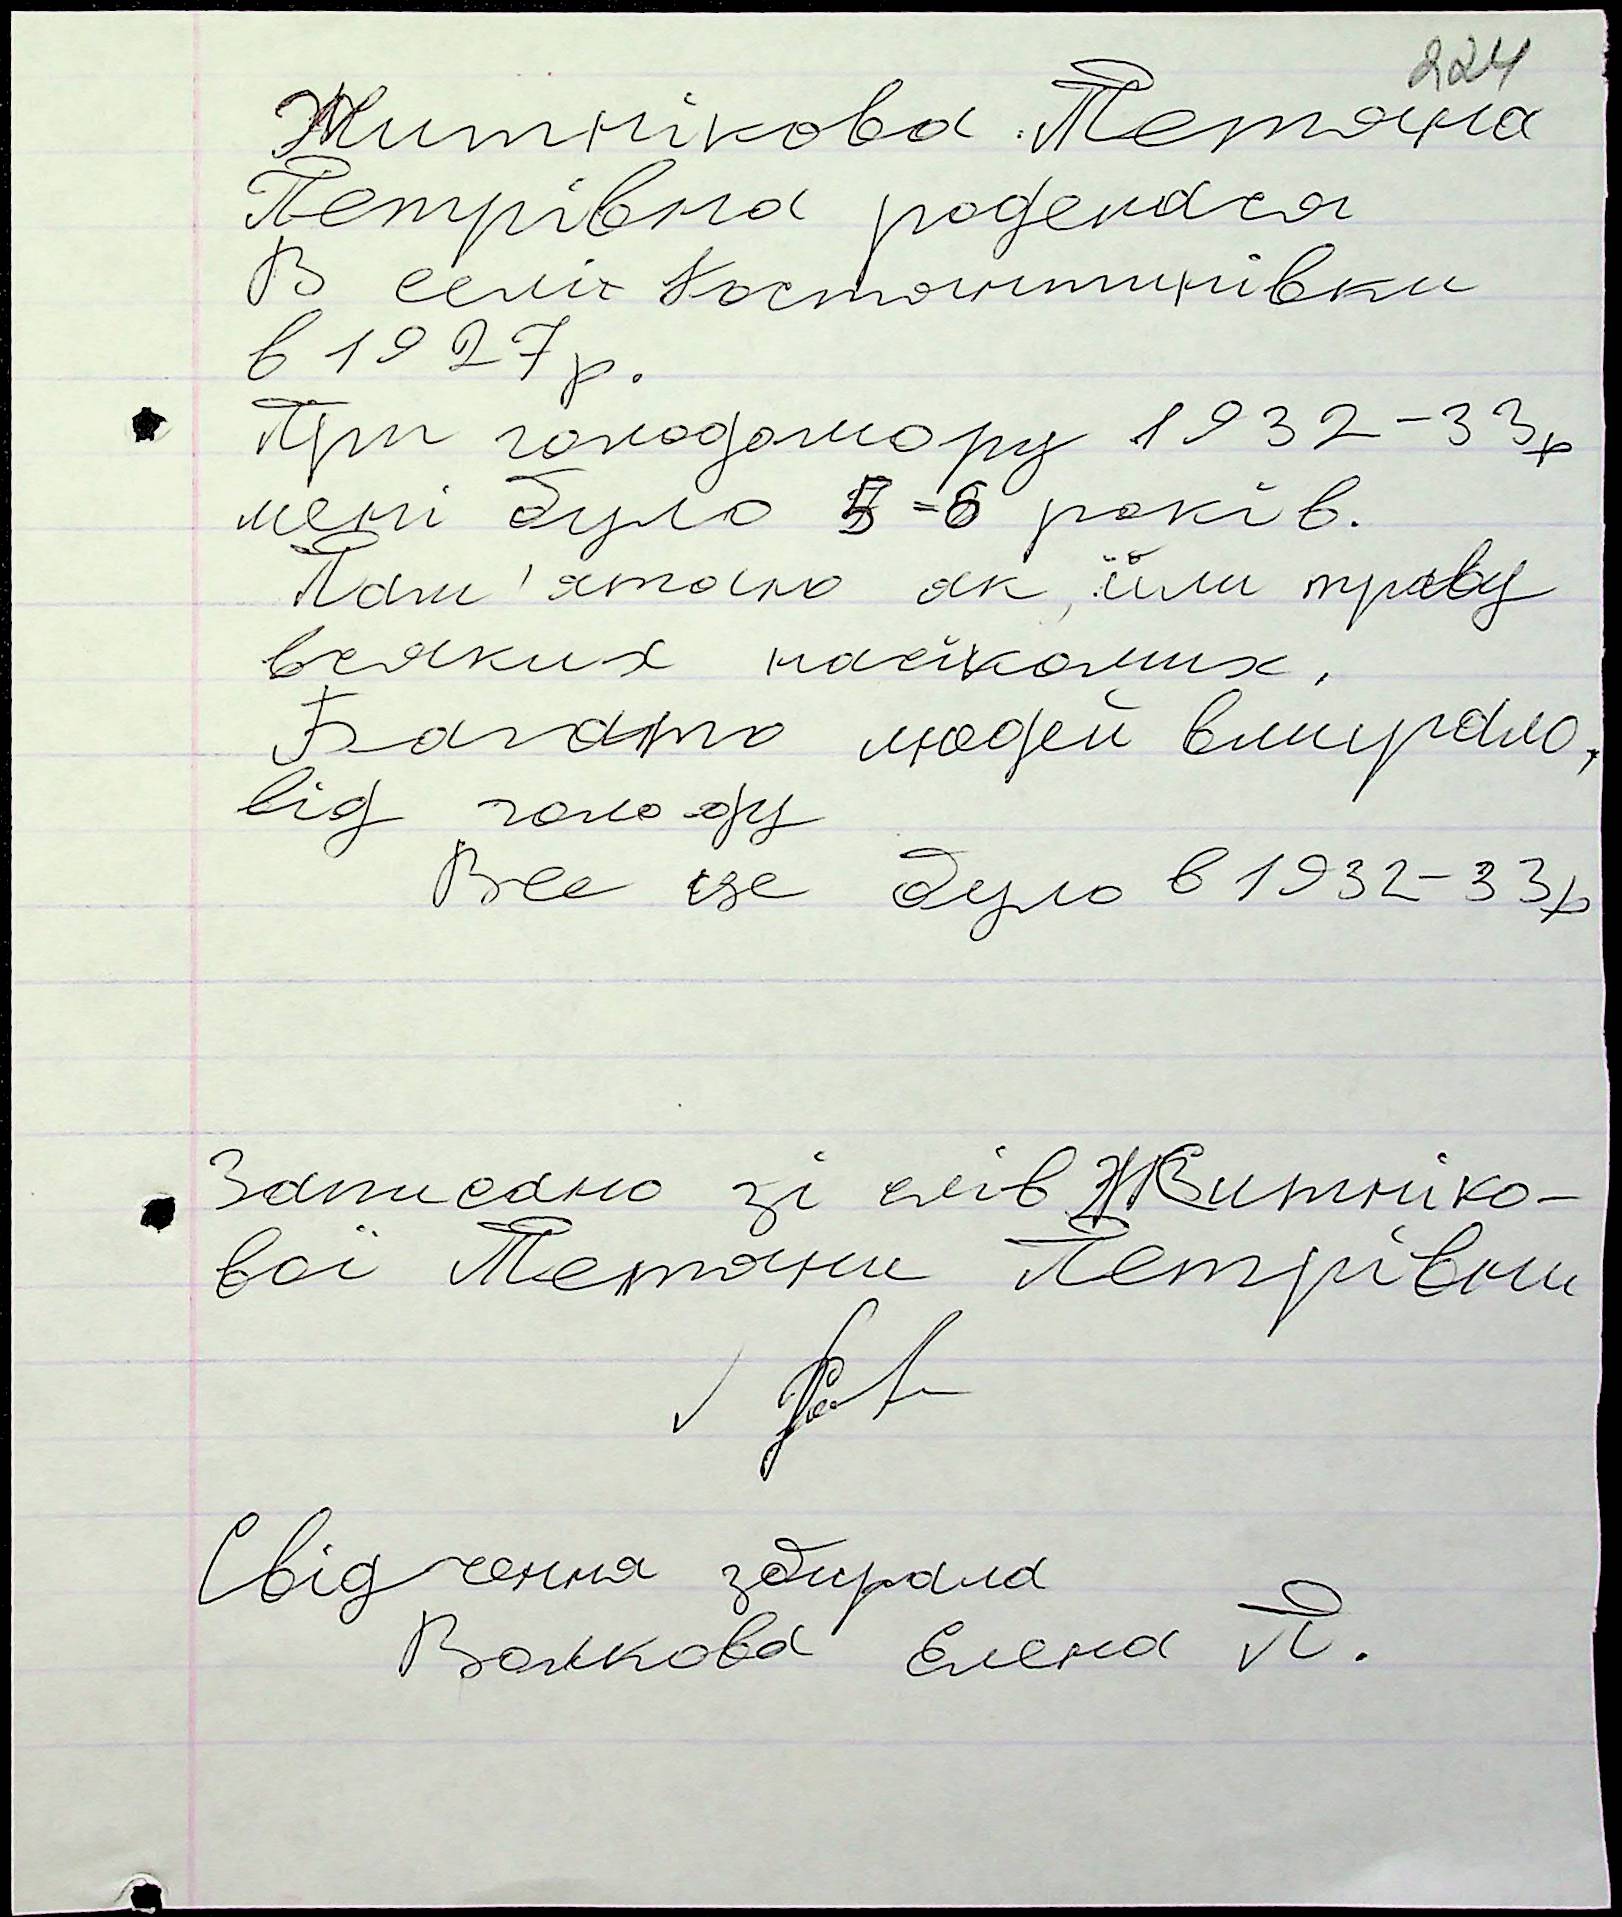 224
Житнікова Тетяна
Петрівна роделася
В селі Костянтинівки
в 1927р.
При голодомору 1932-33р
мені було 5-6 років.
Пам'ятаю як їїли траву
всяких насікомих.
Багато людей вмирало,
від голоду
Все це було в 1932-33р
Записано зі слів Житніко-
вої Тетяни Петрівни
Свідчення збирала
Волкова Елена П.